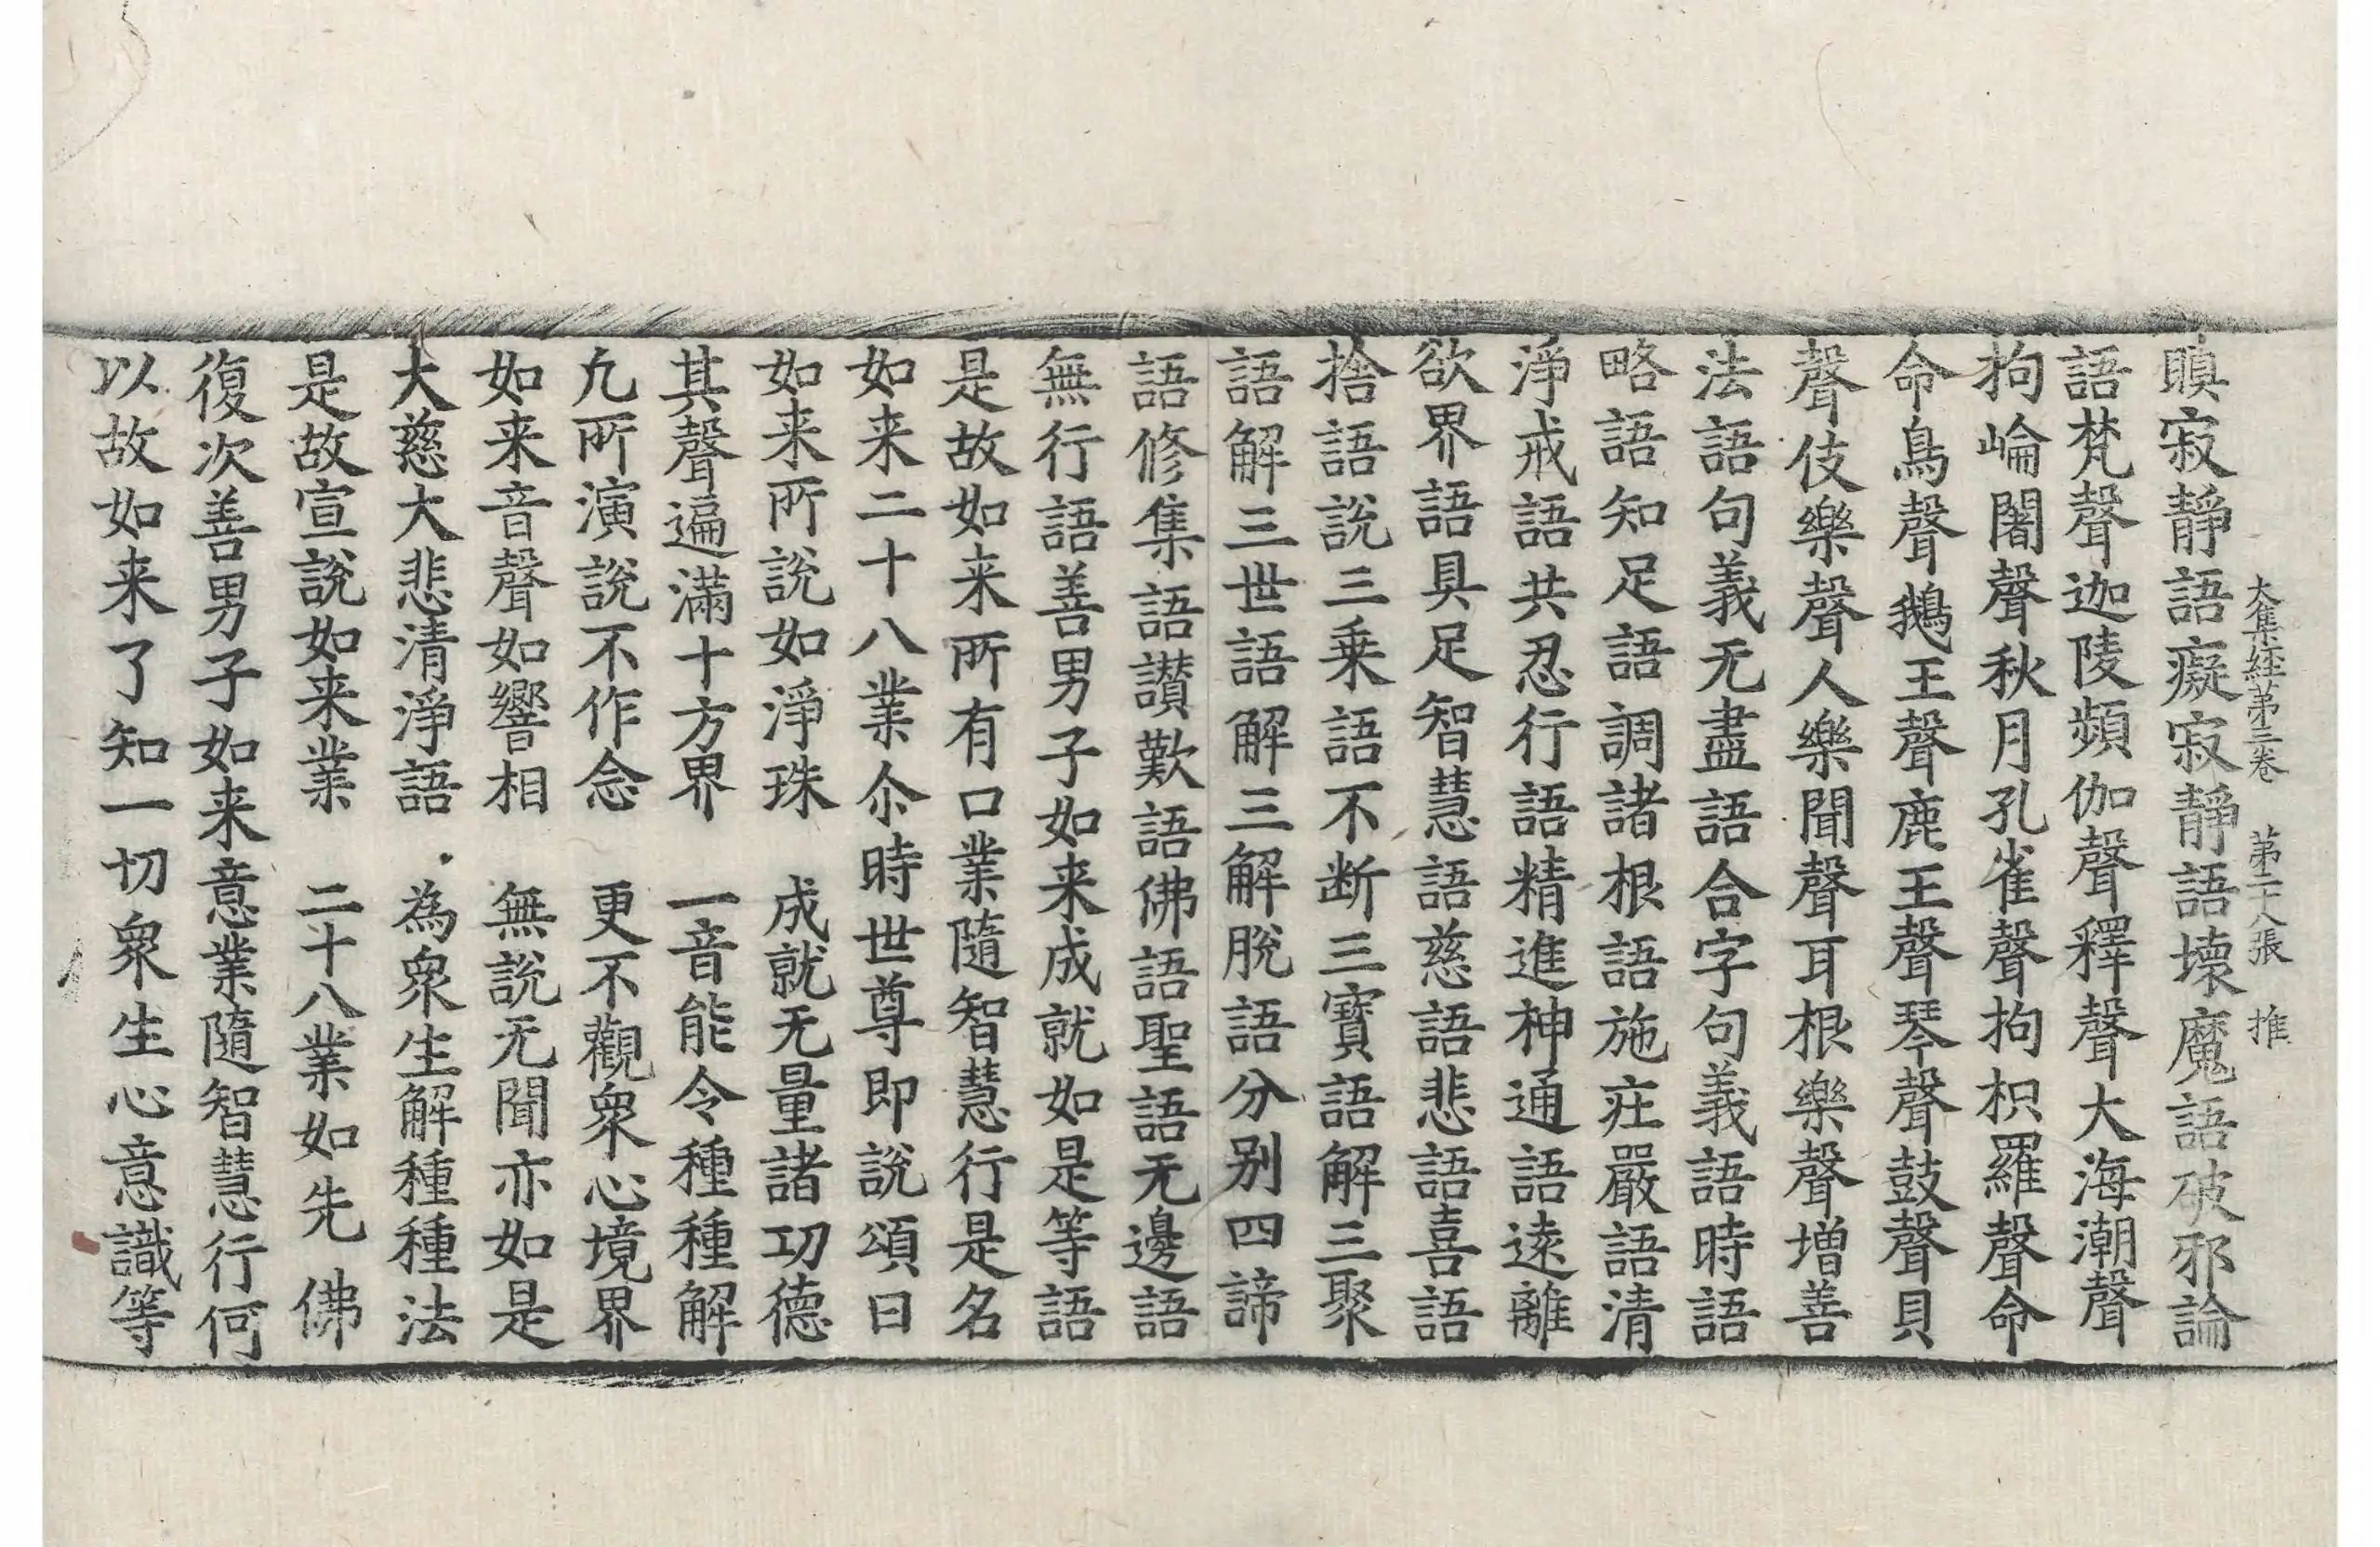 大集経第三卷 第二十八張 推
瞋寂靜語癡寂靜語壞魔語破邪論
語梵聲迦陵頻伽聲釋聲大海潮聲
拘崘闍聲秋月孔雀聲拘枳羅聲命
命鳥聲鵝王聲鹿王聲琴聲鼓聲貝
聲伎樂聲人樂聞聲耳根樂聲增善
法語句義无盡語合字句義語時語
略語知足語調諸根語施庄嚴語清
淨戒語共忍行語精進神通語遠離
欲界語具足智慧語慈語悲語喜語
捨語說三乗語不断三寶語解三聚
語解三世語解三解脫語分别四諦
語修集語讃歎語佛語聖語无邊語
無行語善男子如来成就如是等語
是故如来所有口業隨智慧行是名
如来二十八業尒時世尊即說頌曰
如来所說如淨珠 成就无量諸功德
其聲遍滿十方界 一音能令種種解
凢所演說不作念 更不觀衆心境界
如来音聲如響相 無說无聞亦如是
大慈大悲清淨語 為衆生解種種法
是故宣說如来業 二十八業如先佛
復次善男子如来意業隨智慧行何
以故如来了知一切衆生心意識等